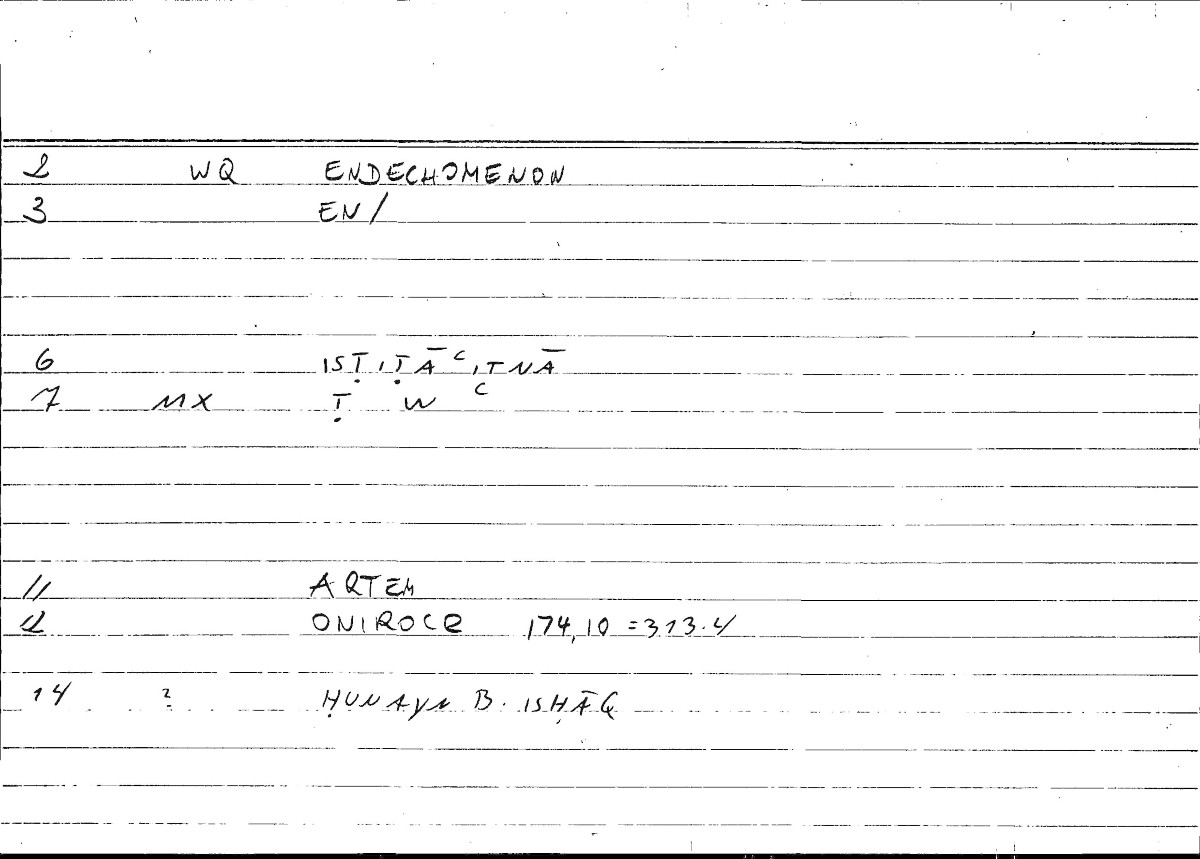 2 WQ ENDECHOMENON
3 EN/
6 ISṬIṬĀʿ,TNĀ
7 MX Ṭ W ʿ
11 ARTEM
12 ONIROCR 174,10 = 313.4
14 ? ḤUNAYN B. ISḤĀQ